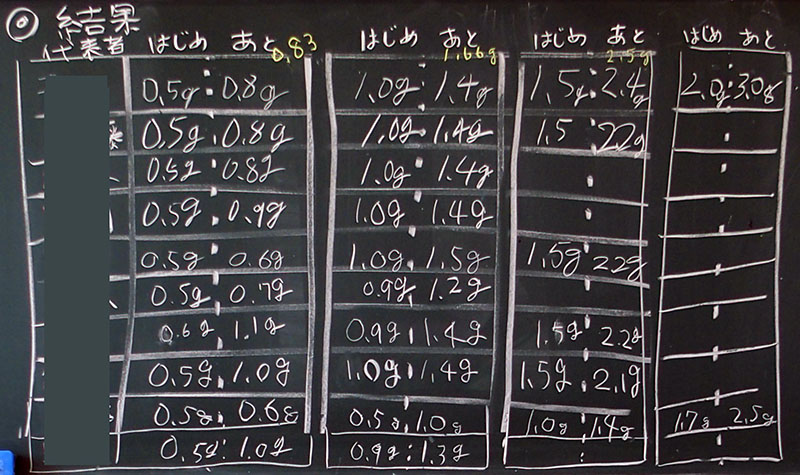 ◎ 結果
代表者 はじめ あと 0.83 はじめ あと 1.66g はじめ あと 2.5g はじめ あと
0.5g:0.8g 1.0g:1.4g 1.5g:2.4g 2.0g:3.0g
0.5g:0.8g 1.0g:1.4g 1.5:22g :
0.5g:0.8g 1.0g:1.4g : :
0.5g:0.9g 1.0g:1.4g : :
0.5g:0.6g 1.0g:1.5g 1.5g:22g :
0.5g:0.7g 0.9g:1.2g : :
0.6g:1.1g 0.9g:1.4g 1.5g:2.2g :
0.5g:1.0g 1.0g:1.4g 1.5g:2.1g :
0.5g:0.6g 0.5g:1.0g 1.0g:1.4g 1.7g:2.5g
0.5g:1.0g 0.9g:1.3g : :